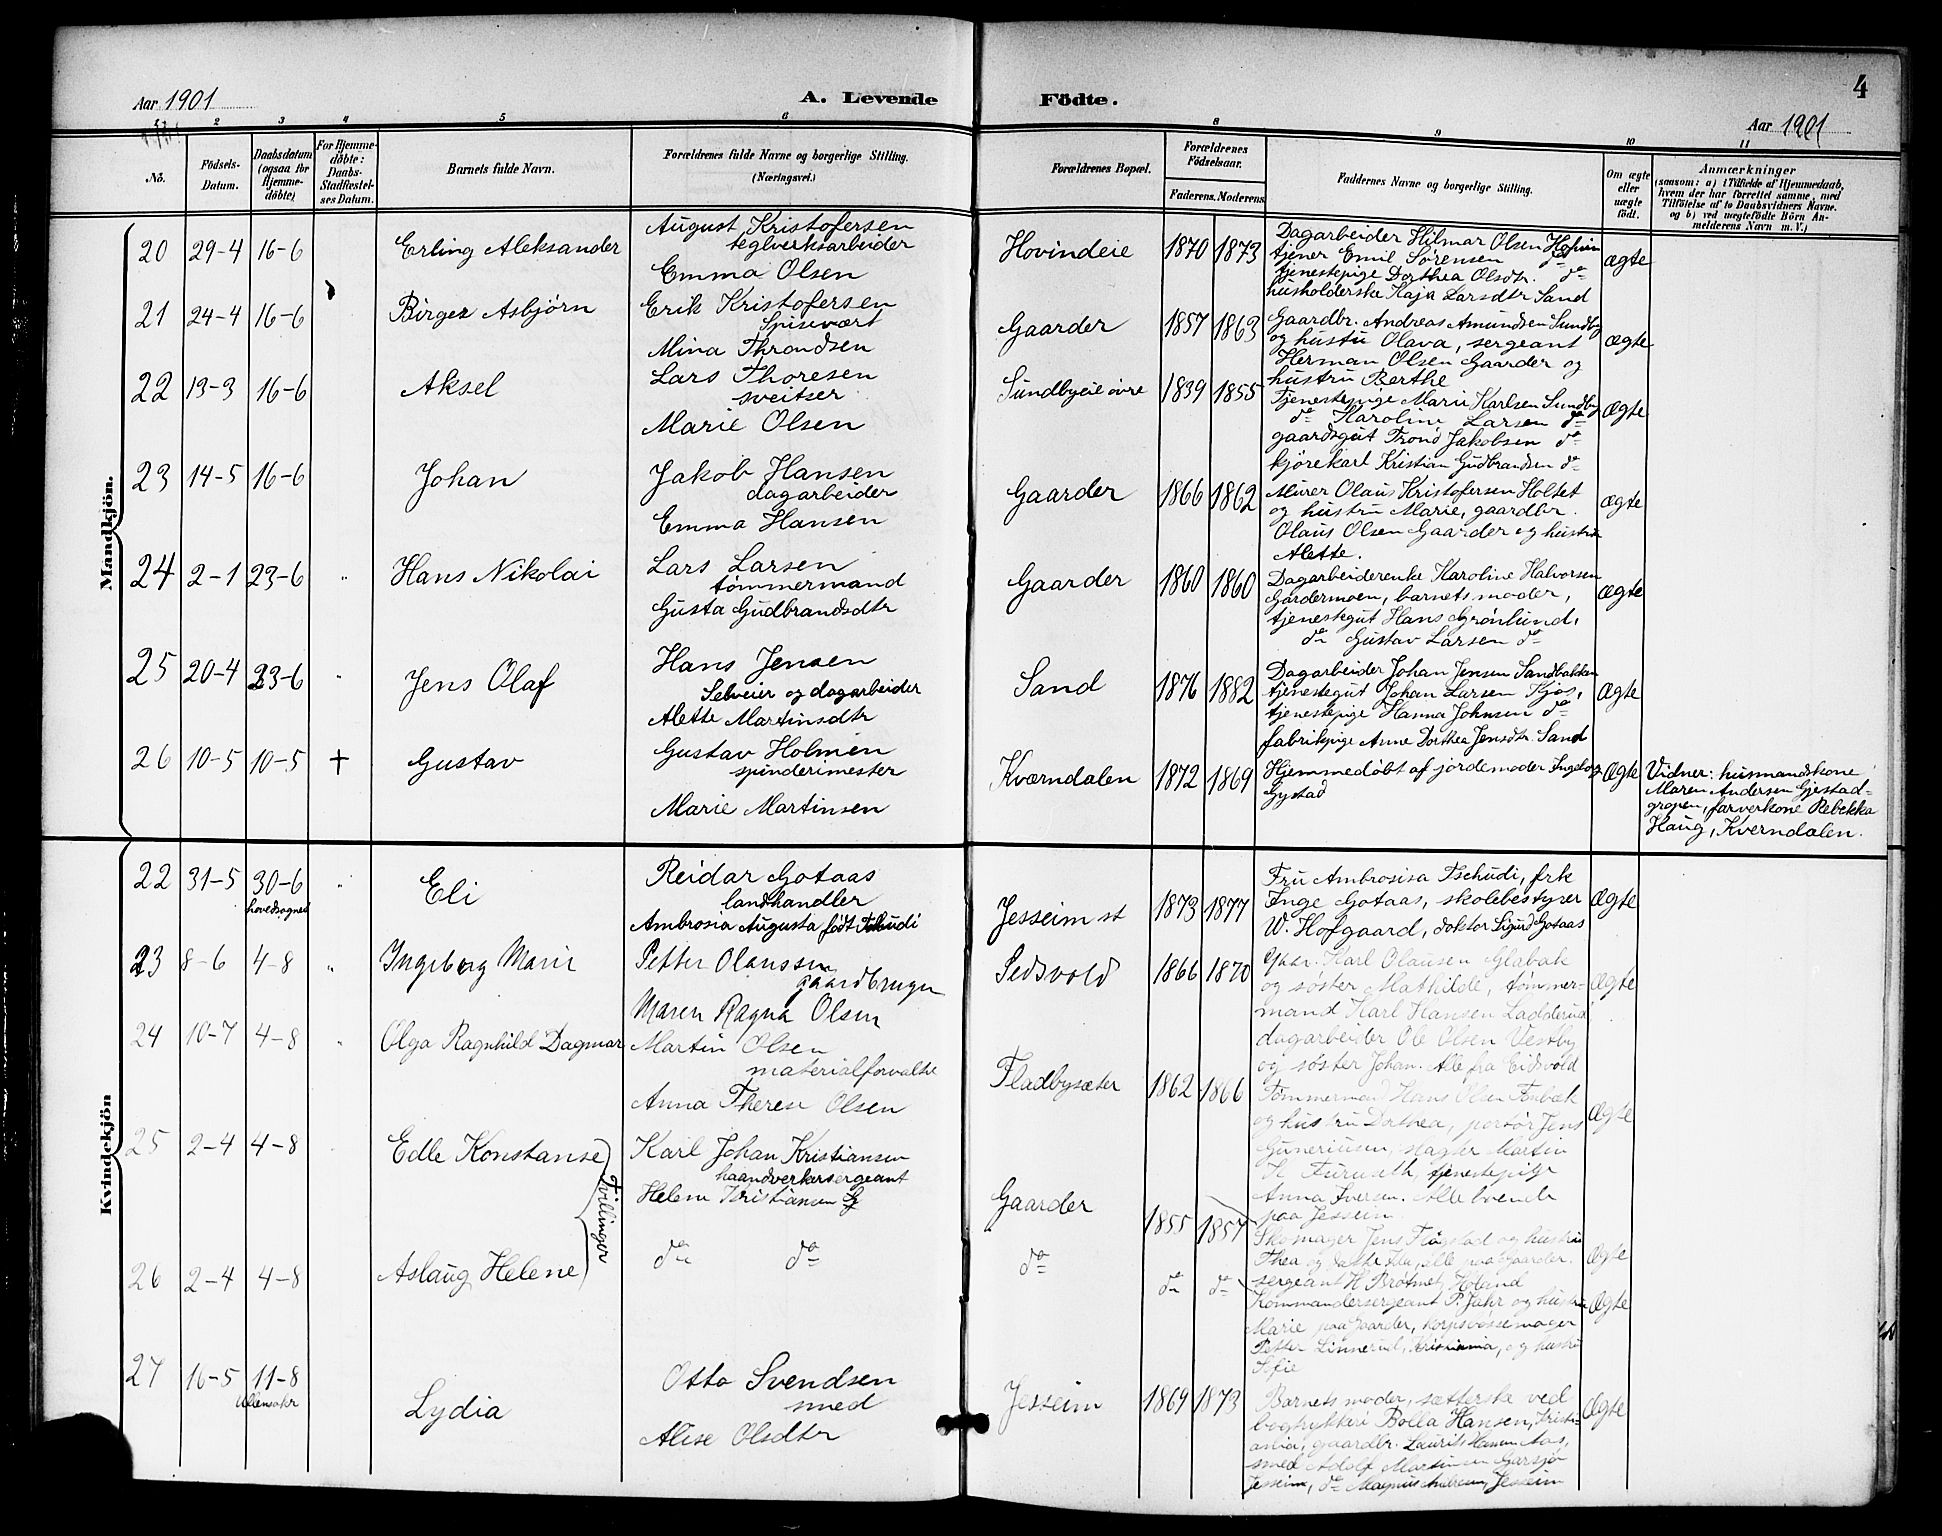 Aar 1901
A. Levende
Födte.
4
Aar 1901
1 2 3 4 5 6 8 9 10 11
No.
Födsels-Datum.
Daabsdatum (ogsaa for Hjemme-döbte)
For Hjemme-döbte: Daabs-Stadfæstel-ses Datum.
Barnets fulde Navn.
Forældrenes fulde Navne og borgerlige Stilling.
(Næringsvei.)
Forældrenes Bopæl.
Forældrenes Födselsaar.
Faderens. Moderens.
Faddernes Navne og borgerlige Stilling.
Om ægte eller uægte födt.
Anmærkninger
(saasom: a) i Tilfælde af Hjemmedaab,
hvem der har forrettet samme, med
Tilföielse af to Daabsvidners Navne.
og b) ved uægtefödte Börn An-
melderens Navn m. V.)
Mandkjön.
20 29-4 16-6 Erling Aleksander
August Kristofersen
teglverksarbeider
Emma Olsen
Hovindeie 1870 1873
Dagarbeider Hilmar Olsen Hovin
tjener Emil Sørensen do
tjenestepige Dorthea Olsdtr. do
husholderske Kaja Larsdtr Sand
Ægte
21 24-4 16-6 Birger Asbjörn
Erik Kristofersen
Spisevært
Mina Throndsen
Gaarder 1857 1863
Gaardbr. Andreas Amundsen Sundby
og hustru Olava, sergeant
Herman Olsen Gaarder og
hustru Berthe
Ægte
22 13-3 16-6 Aksel
Lars Thoresen
sveitser
Marie Olsen
Sundbyeie övre 1839 1855
Tjenestepige Marie Karlsen Sundby
do Karoline Larsen do
gaardsgut Trond Jakobsen do
kjörekarl Kristian Gudbrandsen do
Ægte
23 14-5 16-6 Johan
Jakob Hansen
dagarbeider
Emma Hansen
Gaarder 1866 1862
Murer Olaus Kristofersen Holtet
og hustru Marie, gaardbr.
Olaus Olsen Gaarder og hustru
Alette.
Ægte
24 2-1 23-6 " Hans Nikolai
Lars Larsen
tömmermand
Gusta Gudbrandsdtr
Gaarder 1860 1860
Dagarbeiderenke Karoline Halvorsen
Gardermoen, barnets moder,
tjenestegut Hans Grønlund,
do Gustav Larsen do
Ægte
25 20-4 23-6 " Jens Olaf
Hans Jensen
Selveier og dagarbeider
Alette Martinsdtr
Sand 1876 1882
Dagarbeider Johan Jensen Sandbakken
tjenestegut Johan Larsen Kjos,
tjenestepige Hanna Johnsen do
fabrikpige Anne Dorthea Jensdtr. Sand
Ægte
26 10-5 10-5 † Gustav
Gustav Holmen
spinderimester
Marie Martinsen
Kværndalen 1872 1869
Hjemmedöbt af jordemoder Ingeborg
Gystad
Ægte
Vidner: husmandskone
Maren Andersen Gjestad-
gropen, farverkone Rebekka
Haug, Kverndalen.
Kvindekjön
22 31-5 30-6 " Eli
hovedsognet
Reidar Gotaas
landhandler
Ambrosia Augusta født Tschudi
Jesseim st 1873 1877
Fru Ambrosisa Tschudi, frk
Inge Gotaas, skolebestyrer
W. Hofgaard, doktor Sigurd Gotaas
Ægte
23 8-6 4-8 " Ingeborg Marie
Petter Olaussen
gaardbruger
Maren Ragna Olsen
Pedsvold 1866 1870
Karl Olausen Glabak
og söster Mathilde, tömmer-
mand Karl Hansen Ladderud
dagarbeider Ole Olsen Vestby
og söster Johan. Alle fra Eidsvold
Ægte
24 10-7 4-8 " Olga Ragnhild Dagmar
Martin Olsen
materialforvalter
Anna Therese Olsen
Fladbysæter 1862 1866
Tömmermand Hans Olsen
og hustru Dorthea, portör Jens
Guneriusen, slagter Martin
H. Furuseth, tjenestepige
Anna Iversen. Alle boende
paa Jesseim.
Ægte
25 2-4 4-8 Edle Konstanse
Tvillinger
Karl Johan Kristiansen
haandverkersergeant
Helene Kristiansen
Gaarder 1855 1857
Skomager Jens Flagstad og hustru
Thea og datter Ida, alle paa Gaarder.
sergeant H. Brötmet, Höland
Ægte
26 2-4 4-8 Aslaug Helene
do do
do
do do
Kommandersergeant P. Jahr og hustru
Marie paa Gaarder, korpsbössemager
Petter Linnerud, Kristiania, og hustru
Sofie
Ægte
27 16-5 11-8 Lydia
Ullensaker
Otto Svendsen
smed
Alise Olsdtr
Jesseim 1869 1873
Barnets moder, sætterske ved
bogtrykkeri Bolla Hansen, Kristi-
ania, gaardbr. Laurits Hansen Aas,
smed Adolf Martinsen Garsjö
Jesseim, do Magnus Andersen, Jesseim
Ægte